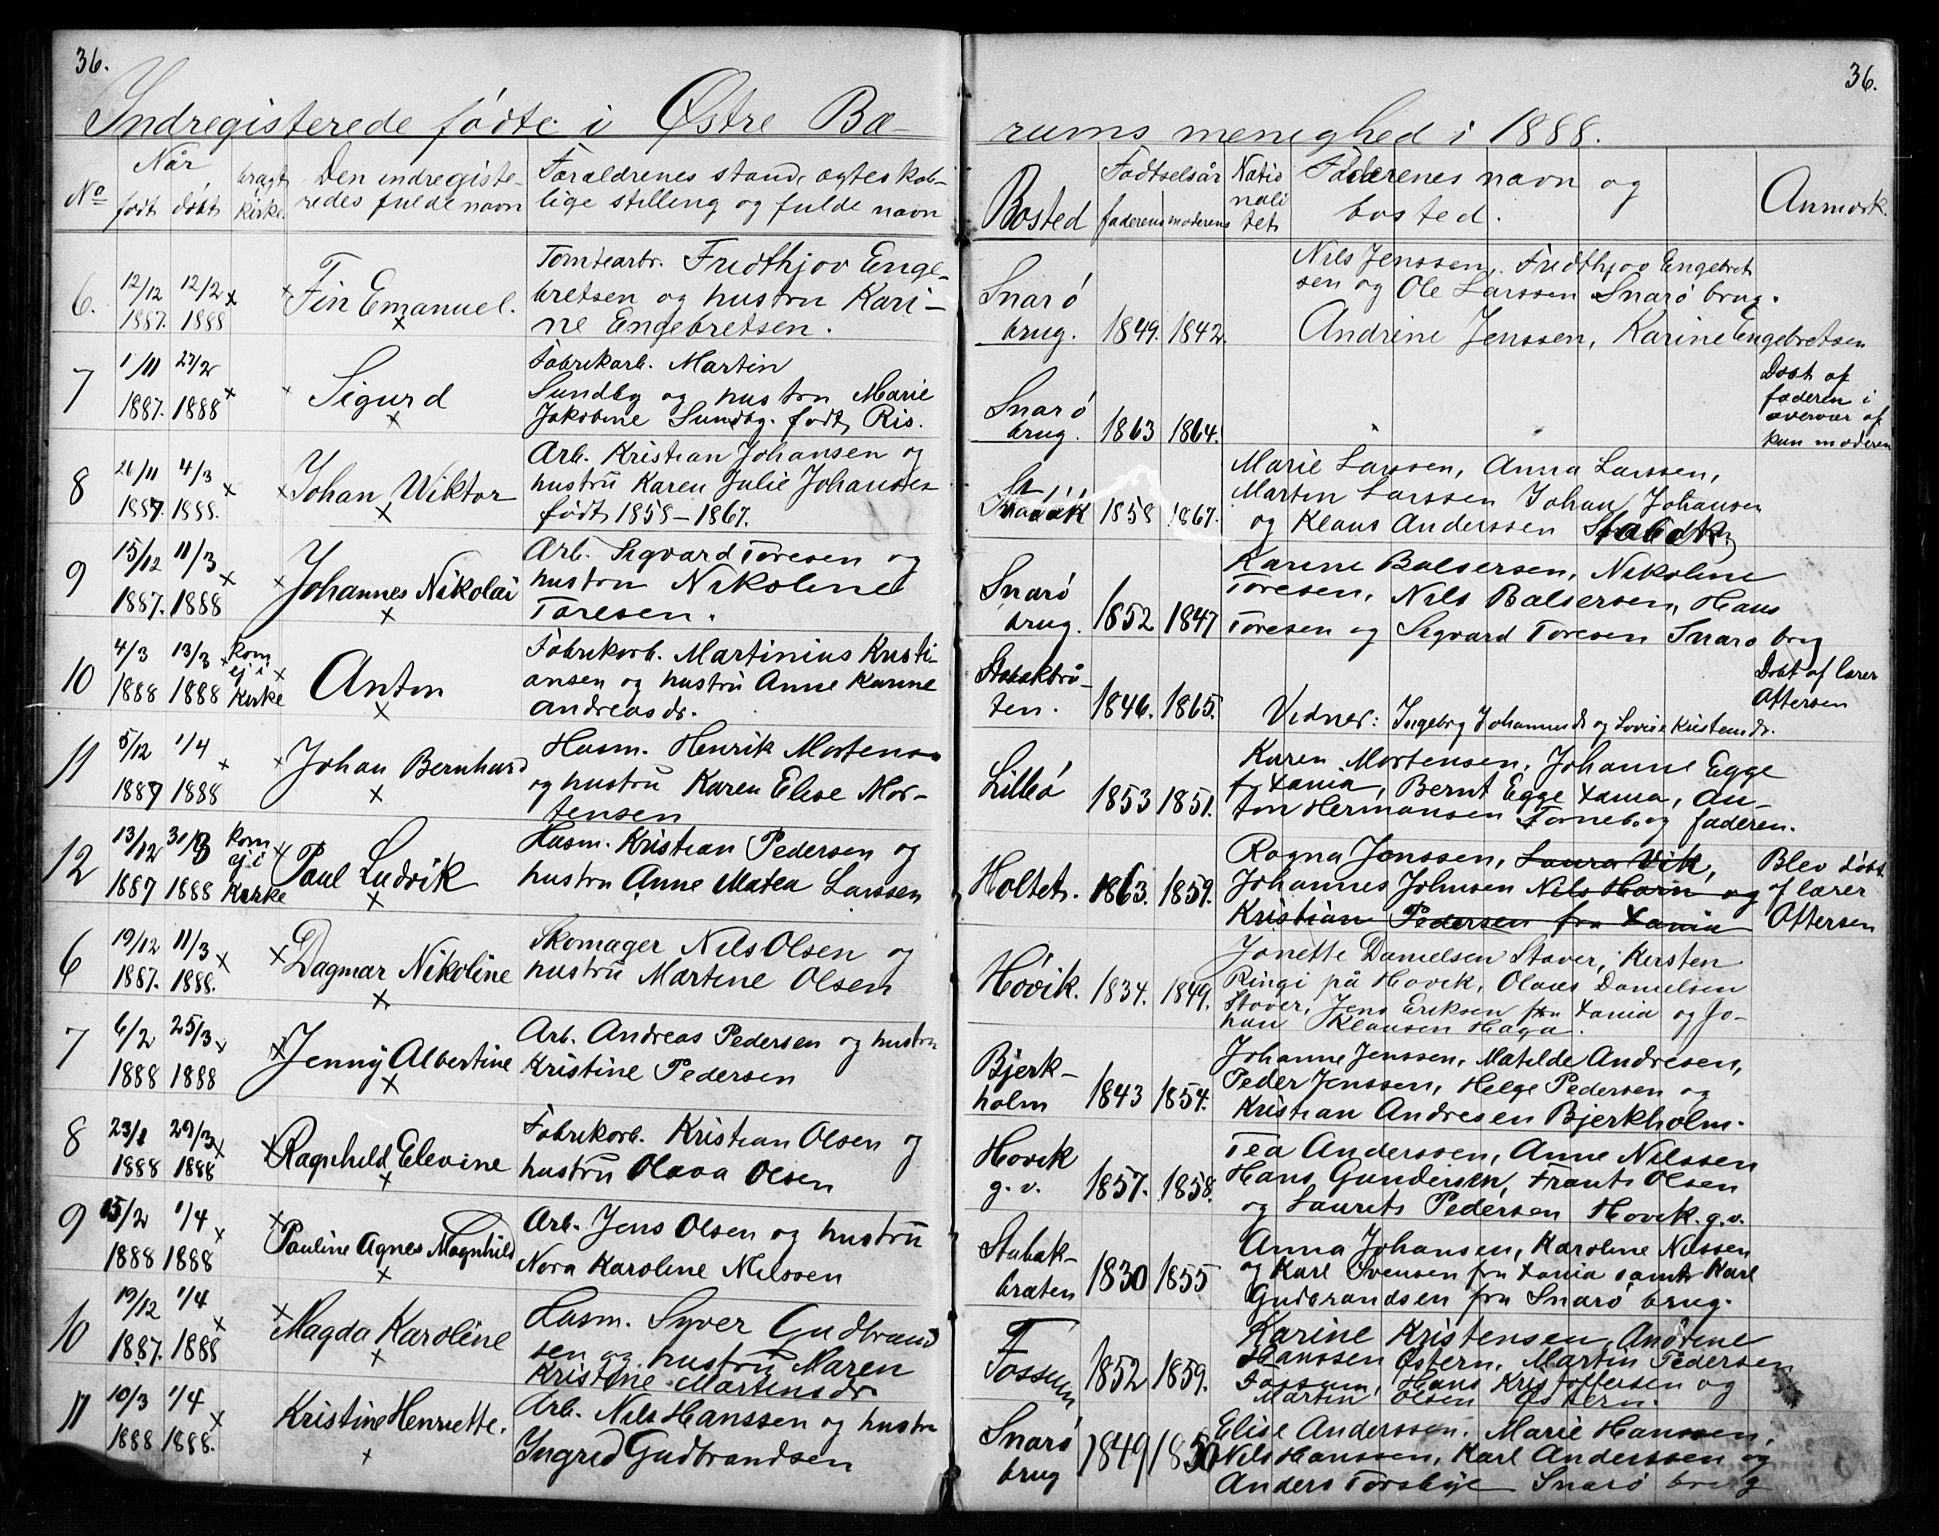 36.
36.
Indregisterede fødte i Østre Bæ-
rums menighed i 1888.
No
Når
født
døbt
bragt
kirke
Den indregiste-
redes fulde navn
Forældrenes stand, ægteskab-
lige stilling og fulde navn
Bosted
Fødtselsår
faderens moderens
Natio
nali
tet
Faderenes navn og
bosted.
Anmærk.
6. 12/12 1887. 12/2 1888 x
x Fin Emanuel.
x
Tomtearbr. Fridthjov Enge-
bretsen og hustru Kari-
ne Engebretsen.
Snarø
brug. 1849. 1842.
Nils Jenssen, Fridthjov Engebret
sen og Ole Larssen Snarø brug.
Andrine Jenssen, Karine Engebretsen
7 1/11 1887. 27/2 1888 x
x Sigurd
x
Fabrikarb. Martin
Sundby og hustru Marie
Jakobine Sundby. født Ris.
Snarø
brug. 1863 1864.
Døbt af
faderen i
overvær af
kun moderen
8 26/11 1887. 4/3 1888. x
x Johan Viktor
x
Arb. Kristian Johansen og
hustru Karen Julie Johansen
født 1858 – 1867.
1858 1867.
Marie Larssen, Anna Larssen,
Martin Larssen Johan Johansen
og Klaus Anderssen Stabæk
9 15/12 1887. 11/3 1888 x
x Johannes Nikolai
x
Arb. Sigvard Toresen og
hustru Nikoline
Toresen.
Snarø
brug. 1852 1847
Karine Balsersen, Nikoline
Toresen, Nils Balsersen, Hans
Toresen og Sigvard Toresen Snarø brug
10 4/3 1888 13/3 1888 x kom
ej i
Kirke
x Anton
x
Fabrikarb. Martinius Kristi-
ansen og hustru Anne Karine
Andreasdr.
Stabækbrå-
ten. 1846. 1865.
Vidner: Ingebrg Johannesdr og Lovise Kristensdr.
Døbt af lærer
Oftersen
11 5/12 1887 1/4 1888 x
x Johan Bernhard
x
Husm. Henrik Mortensen
og hustru Karen Elise Mor-
tensen
Lilleø 1853 1851.
Karen Mortensen, Johanne Egge
f. Xania, Bernt Egge Xania, An-
ton Hermansen Fornebo og faderen.
12 13/12 1887 1888 kom
ej i
Kirke
x Paul Ludvik
x
Husm. Kristian Pedersen og
hustru Anne Matea Larssen
Holtet. 1863. 1859.
Ragna Jenssen, Laura Vik,
Johannes Johnsen Nils Horn og
Kristian Pedersen fra Xania
Blev døbt
af lærer
Oftersen
6 19/12 1887. 11/3 1888. x
x Dagmar Nikoline
x
Skomager Nils Olsen og
hustru Martine Olsen
Høvik. 1834. 1849.
Jonette Danielsen Staver, Kirsten
Ringi på Høvik, Olaus Danielsen
Staver, Jens Eriksen fra Xania og Jo-
han Klausen Haga.
7 6/2 1888 25/3 1888 x
x Jenny Albertine
x
Arb. Andreas Pedersen og hustru
Kristine Pedersen
Bjerk-
holm 1843 1854.
Johanne Jenssen, Matilde Andresen,
Peder Jenssen, Helge Pedersen og
Kristian Andresen Bjerkholm.
8 23/1 1888 29/3 1888 x
x Ragnhild Elevine
x
Fabrikarb. Kristian Olsen og
hustru Olava Olsen
Høvik
g. v. 1857. 1858.
Tea Anderssen, Anne Nilssen
Hans Gundersen, Frants Olsen
og Laurits Pedersen Høvik. g.v.
9 15/2 1888 1/4 1888 x
x Pauline Agnes Magnhild
x
Arb. Jens Olsen og hustru
Nora Karoline Nilssen
Stabæk-
bråten 1830 1855
Anna Johansen, Karoline Nilssen
og Karl Svensen fra Xania samt Karl
Gudbrandsen fra Snarø brug.
10 19/12 1887. 1/4 1888 x
x Magda Karoline
x
Husm. Syver Gudbrand
sen og hustru Maren
Kristine Martinsdr
Fossum 1852 1859.
Karine Kristensen, Andrine
Hanssen Østern, Martin Pedersen
Fossum, Hans Kristoffersen og
Martin Olsen Østern.
11 10/3 1888 1/4 1888. x
Kristine Henriette.
x
Arb. Nils Hanssen og hustru
Ingrid Gudbrandsen
Snarø
brug 1849 1850
Elise Anderssen, Marie Hanssen,
Nils Hanssen, Karl Anderssen og
Anders Torsbye Snarø brug